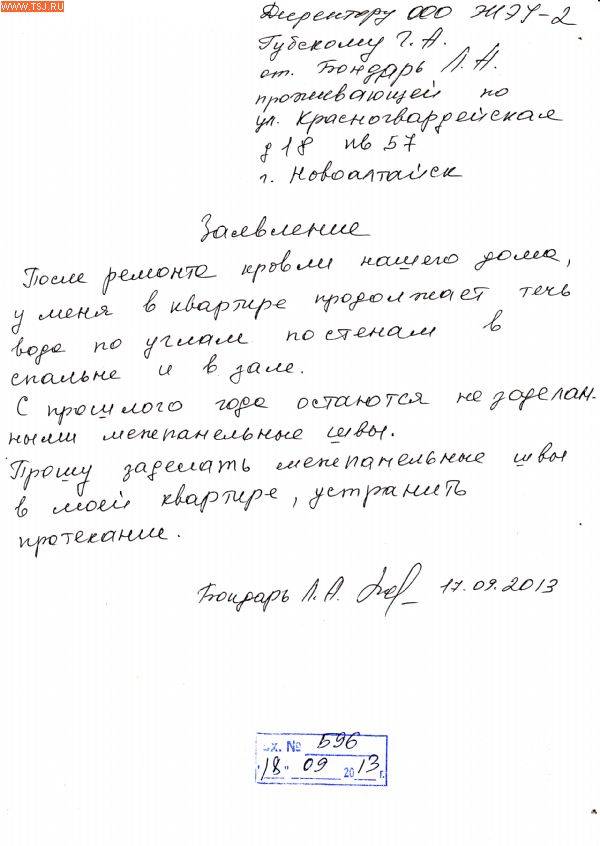 WWW.TSJ.RU
Директору ООО ЖЭУ-2
Губскому Г.А.
от. Бондарь Л.А.
проживающей по
ул. Красногвардейская
д 18 кв 57
г. Новоалтайск
Заявление
После ремонта кровли нашего дома,
у меня в квартире продолжает течь
вода по углам по стенам в
спальне и в зале.
С прошлого года остаются не заделан-
ными межпанельные швы.
Прошу заделать межпанельные швы
в моей квартире, устранить
протекание.
Бондарь Л.А. 17.09.2013
вх. № 596
"18" 09 2013 г.